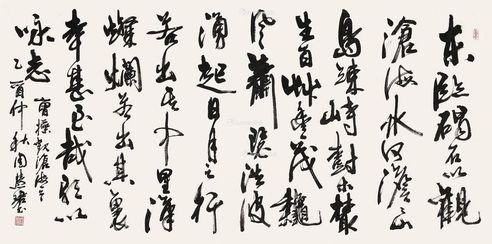 東臨碣石以觀
滄海水何澹々山
島竦峙樹木叢
生百艸豐茂龝
風蕭瑟洪波
湧起日月之行
若出其中星漢
燦爛若出其裏
幸甚至哉歌以
詠志
曹操觀滄海
乙酉仲秋周慧珺